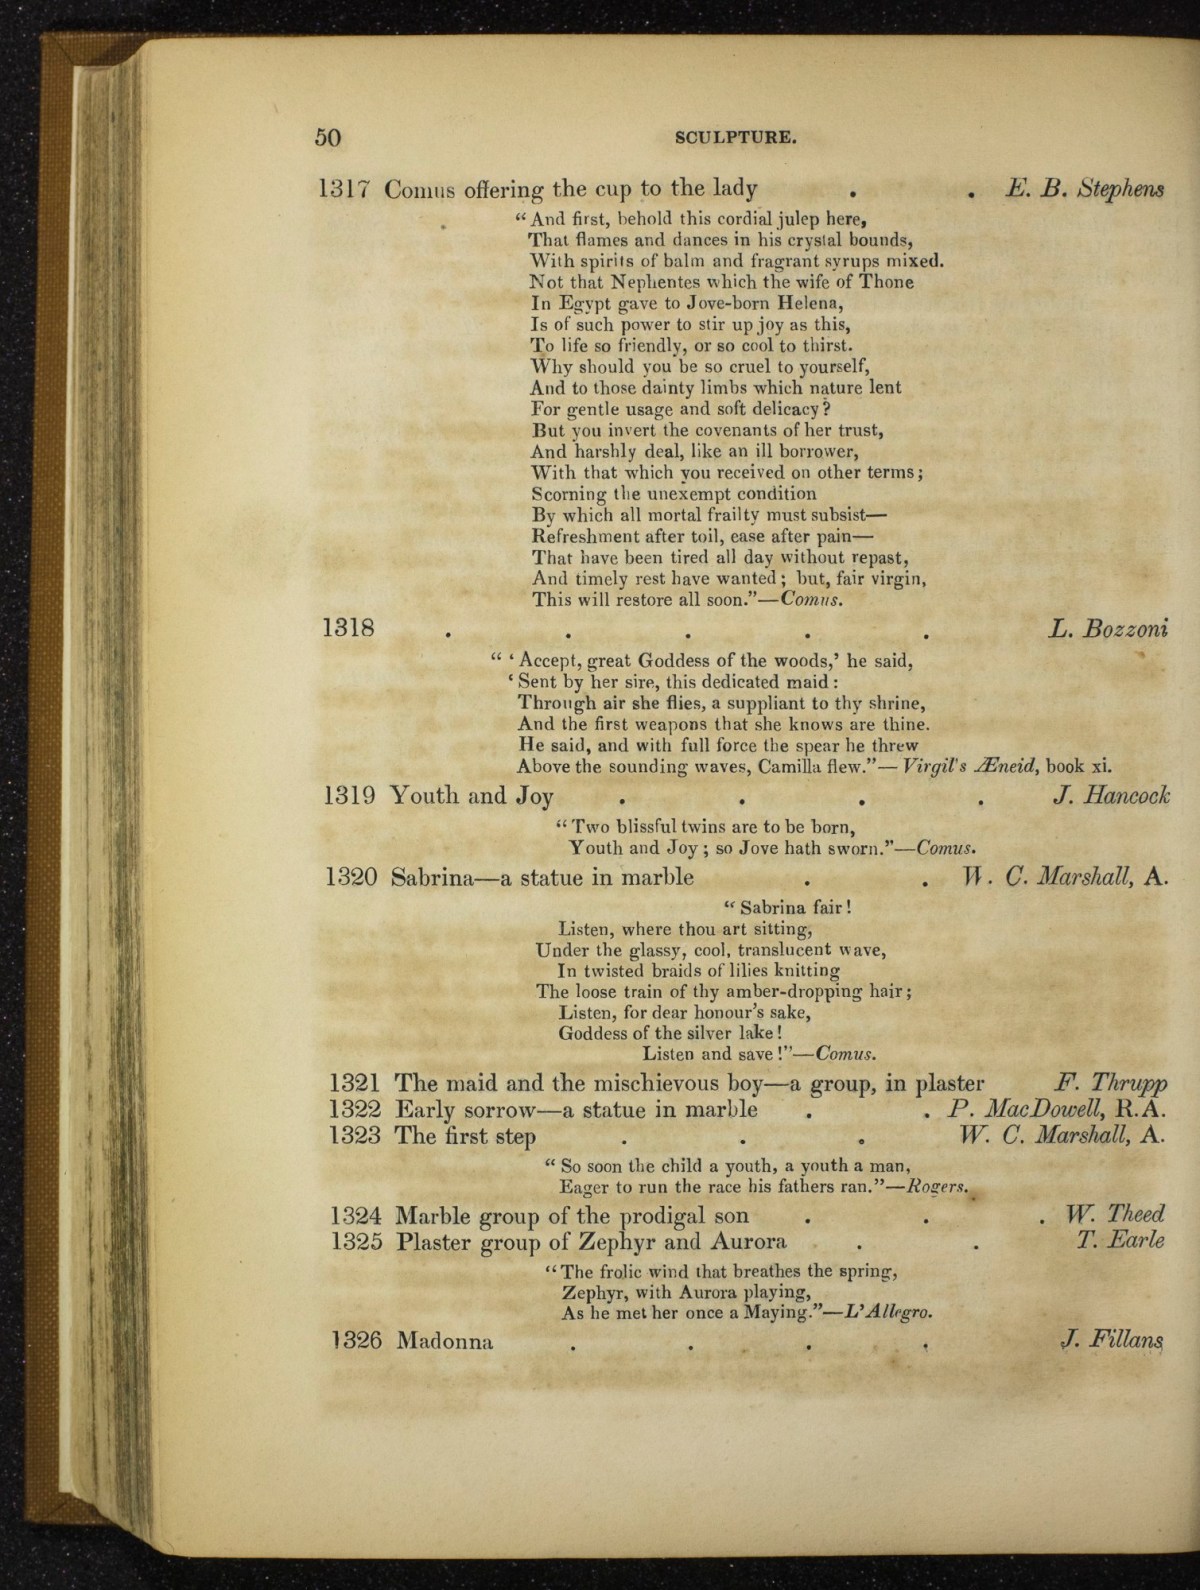 50 SCULPTURE.
1317 Comus offering the cup to the lady . . E. B. Stephens
“And first, behold this cordial julep here,
That flames and dances in his crystal bounds,
With spirits of balm and fragrant syrups mixed.
Not that Nephentes which the wife of Thone
In Egypt gave to Jove-born Helena,
Is of such power to stir up joy as this,
To life so friendly, or so cool to thirst.
Why should you be so cruel to yourself,
And to those dainty limbs which nature lent
For gentle usage and soft delicacy?
But you invert the covenants of her trust,
And harshly deal, like an ill borrower,
With that which you received on other terms;
Scorning the unexempt condition
By which all mortal frailty must subsist—
Refreshment after toil, ease after pain—
That have been tired all day without repast,
And timely rest have wanted; but, fair virgin,
This will restore all soon.”—Comus.
1318 . . . . . L. Bozzoni
“ ‘Accept, great Goddess of the woods,’ he said,
‘Sent by her sire, this dedicated maid:
Through air she flies, a suppliant to thy shrine,
And the first weapons that she knows are thine.
He said, and with full force the spear he threw
Above the sounding waves, Camilla flew.”—Virgil's Æneid, book xi.
1319 Youth and Joy . . . . J. Hancock
“Two blissful twins are to be born,
Youth and Joy; so Jove hath sworn.”—Comus.
1320 Sabrina—a statue in marble . . W. C. Marshall, A.
“Sabrina fair!
Listen, where thou art sitting,
Under the glassy, cool, translucent wave,
In twisted braids of lilies knitting
The loose train of thy amber-dropping hair;
Listen, for dear honour's sake,
Goddess of the silver lake!
Listen and save!”—Comus.
1321 The maid and the mischievous boy—a group, in plaster F. Thrupp
1322 Early sorrow—a statue in marble . . P. MacDowell, R.A.
1323 The first step . . . W. C. Marshall, A.
“So soon the child a youth, a youth a man,
Eager to run the race his fathers ran.”—Rogers.
1324 Marble group of the prodigal son . . . W. Theed
1325 Plaster group of Zephyr and Aurora . . T. Earle
“The frolic wind that breathes the spring,
Zephyr, with Aurora playing,
As he met her once a Maying.”—L'Allegro.
1326 Madonna . . . . J. Fillans